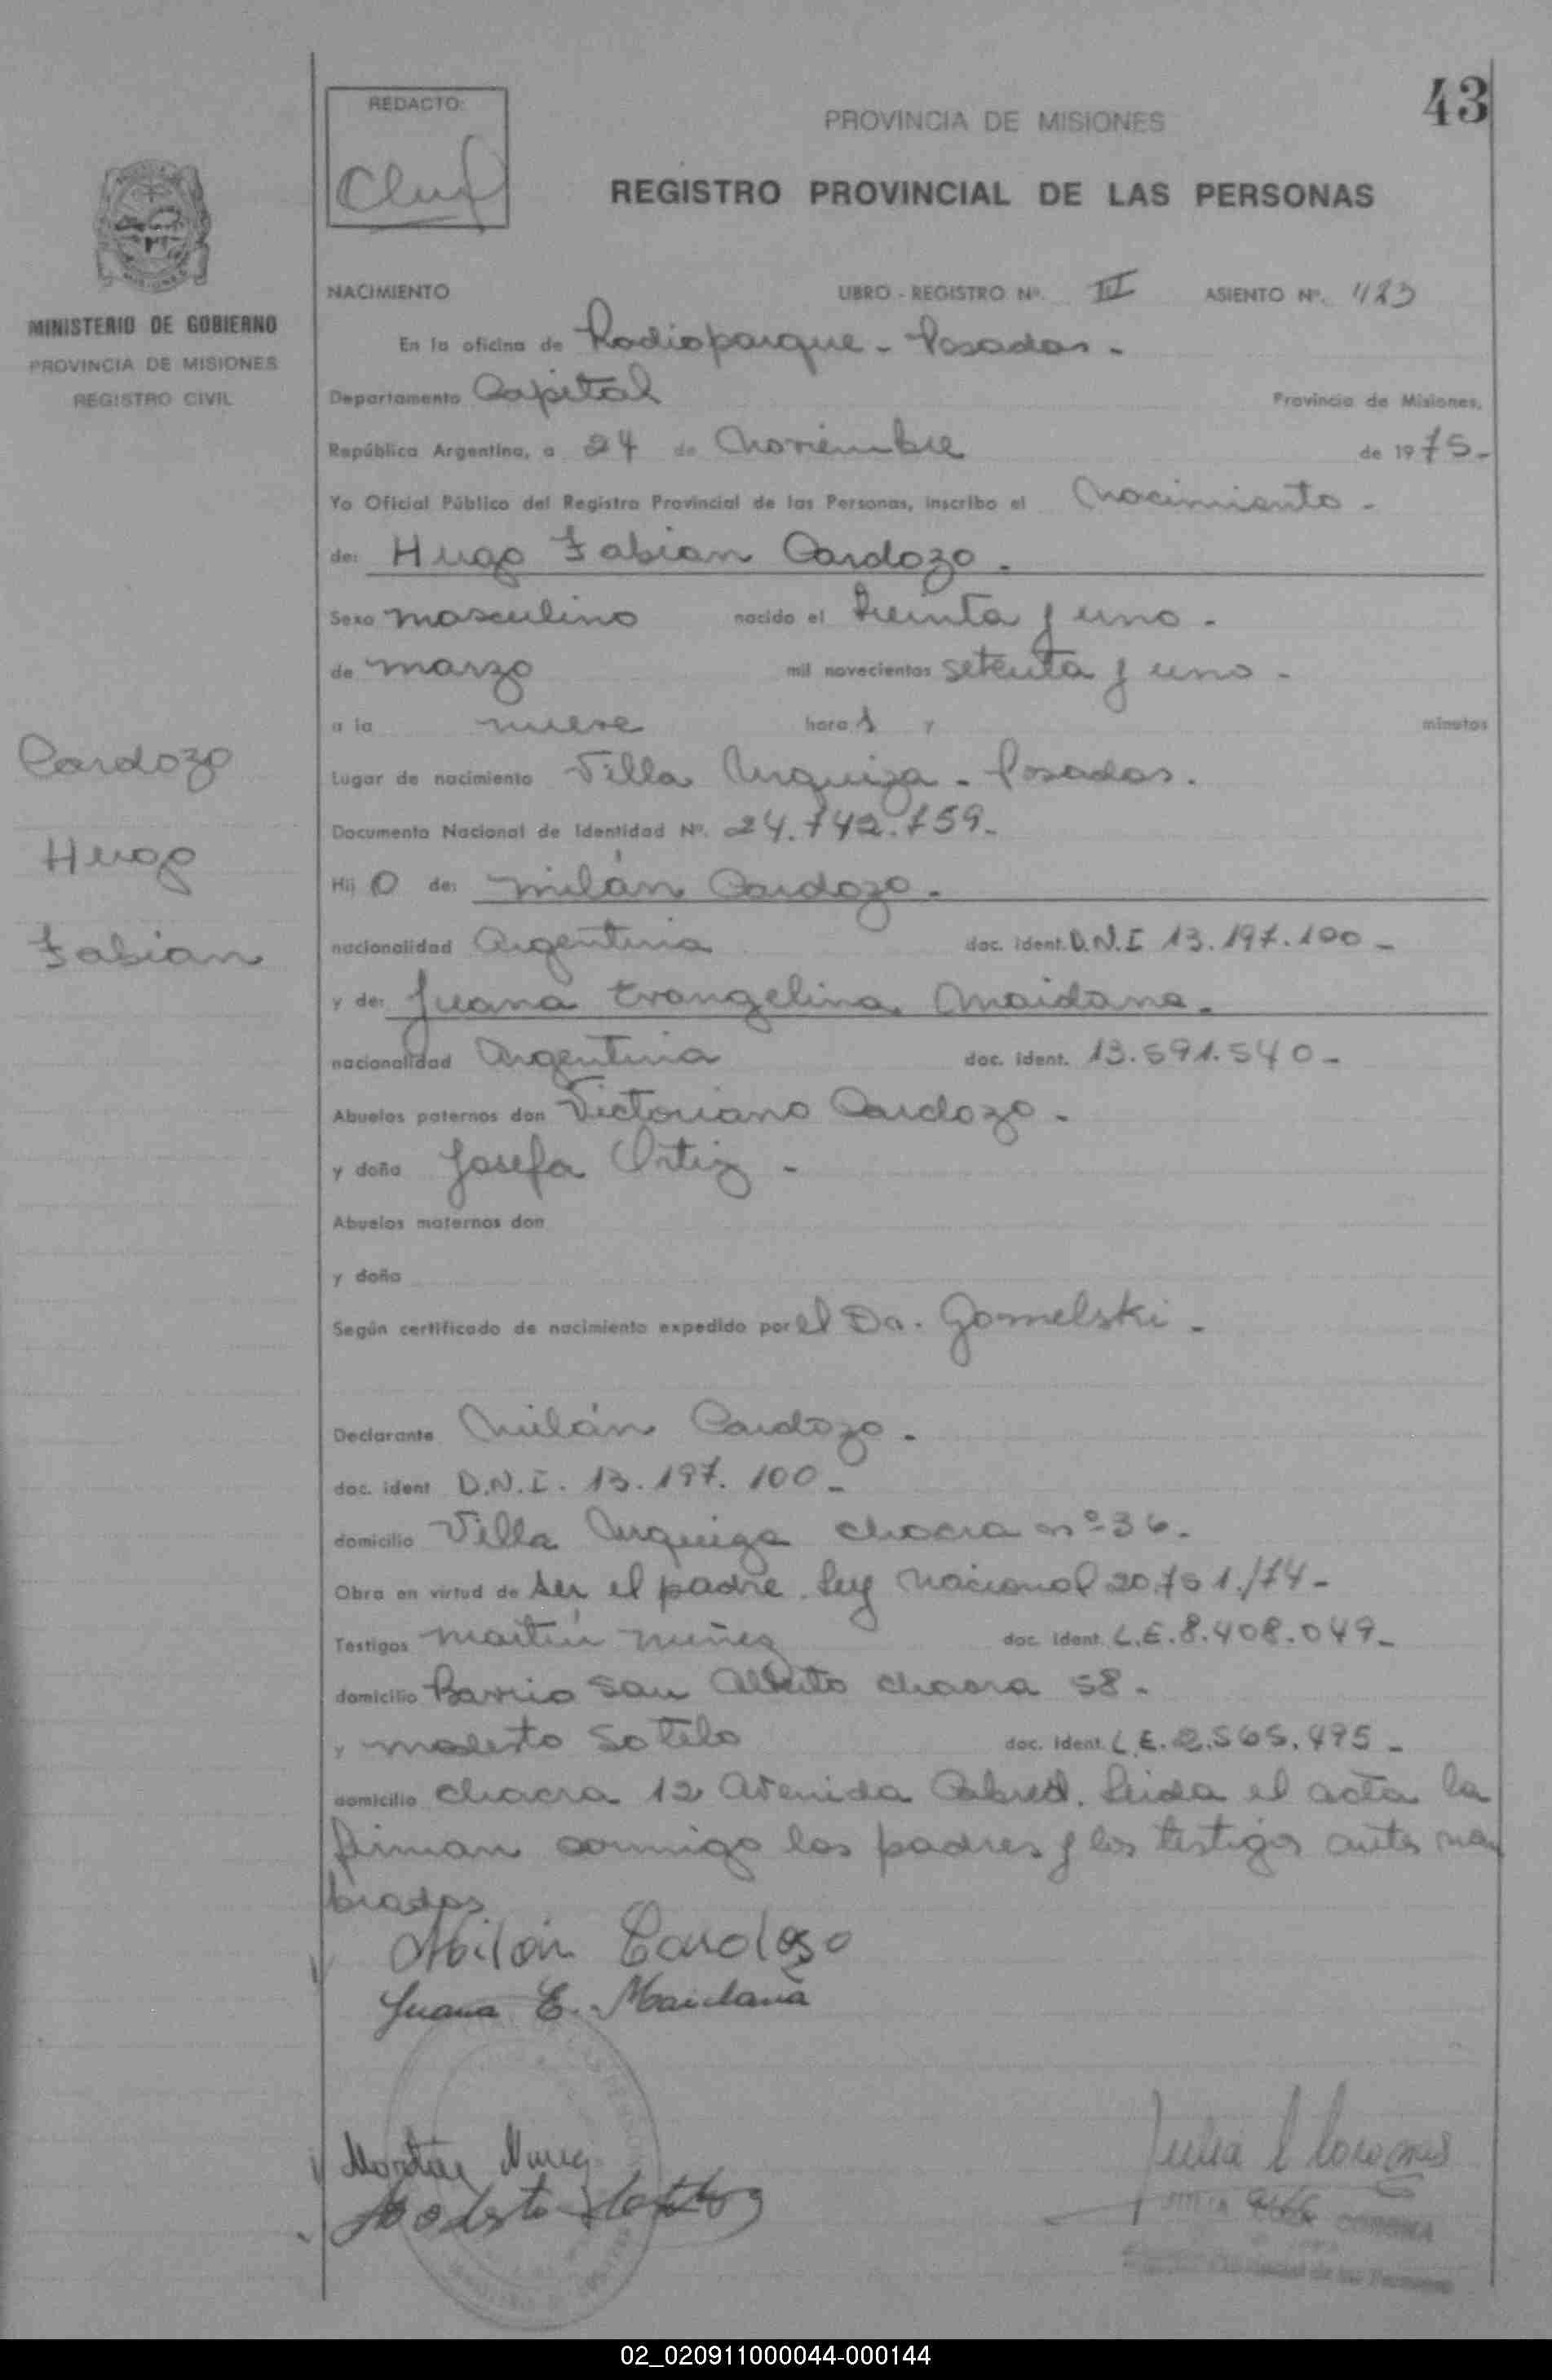 43
REDACTO:
PROVINCIA DE MISIONES
REGISTRO PROVINCIAL DE LAS PERSONAS
MINISTERIO DE GOBIERNO
PROVINCIA DE MISIONES
REGISTRO CIVIL
NACIMIENTO LIBRO - REGISTRO Nº. III ASIENTO Nº. 423
En la oficina de Radioparque - Posadas -
Departamento Capital Provincia de Misiones,
República Argentina, a 24 de Noviembre de 1975 -
Yo Oficial Público del Registro Provincial de las Personas, inscribo el Nacimiento -
de: Hugo Fabian Cardozo.
Sexo masculino nacido el treinta y uno -
de marzo mil novecientos setenta y uno -
a la nueve hora s y minutos
Lugar de nacimiento Villa Urquiza - Posadas.
Documento Nacional de Identidad Nº. 24.742.759 -
Hij o de: Milán Cardozo.
nacionalidad Argentina doc. ident. D.N.I 13.197.100 -
y de: Juana Evangelina Maidana.
nacionalidad Argentina doc. ident. 13.591.540 -
Abuelos paternos don Victoriano Cardozo -
y doña Josefa Ortiz -
Abuelos maternos don
y doña
Según certificado de nacimiento expedido por el Dr. Gomelski -
Declarante Milán Cardozo.
doc. ident D.N.I. 13.197.100 -
domicilio Villa Urquiza chacra nº 36.
Obra en virtud de ser el padre Ley Nacional 20.751./74 -
Testigos Martín Nuñez doc. ident. L.E. 8.408.049 -
domicilio Barrio San Alberto chacra 58 -
y Modesto Sotelo doc. ident. L.E. 2.565.495 -
domicilio chacra 12 Avenida Cabred. Leida el acta la
firman conmigo los padres y los testigos antes nom
brados
Milán Cardozo
Juana E. Maidana
Martín Nuñez
Modesto Sotelo
Cardozo
Hugo
Fabian
02_020911000044-000144